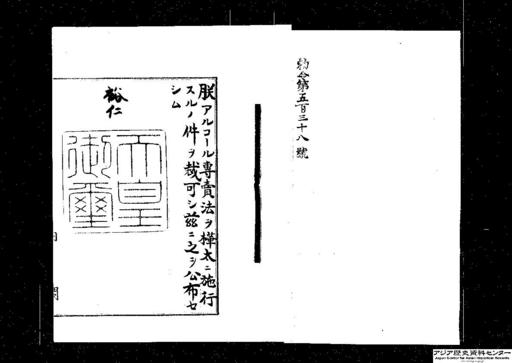 勅令第五百三十八號
朕アルコール専賣法ヲ樺太ニ施行
スルノ件ヲ裁可シ茲ニ之ヲ公布セ
シム
裕仁
天皇
御璽
アジア歴史資料センター
Japan Center for Asian Historical Records